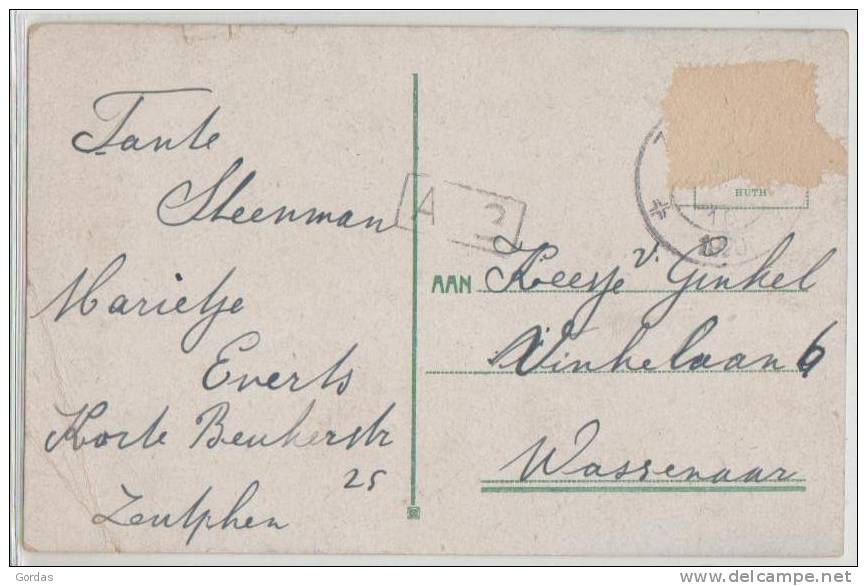 Tante
Steenman
Marietje
Everts
Korte Beukerstr
25
Zutphen
A 2
HUTH
1920
AAN Keesje v. Ginkel
Vinkelaan 6
Wassenaar
Gordas
delcampe.net